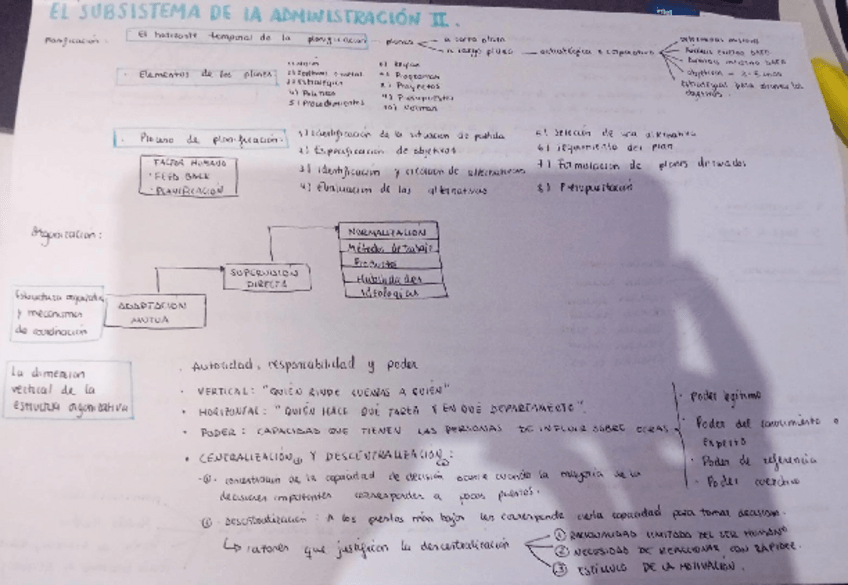 EL SUBSISTEMA DE LA ADMINISTRACIÓN II.
Planificación: El horizonte temporal de la planificación planes a corto plazo
a largo plazo estratégica o corporativa
objetivos
Estrategias para
objetivos.
Elementos de los planes
3) Estrategia
4) Políticas
5) Procedimientos
7) Programas
8) Proyectos
9) Presupuestos
10) Normas
Proceso de planificación:
1) Identificación de la situación de partida
2) Especificación de objetivos
3) Identificación y creación de alternativas
4) Evaluación de las alternativas
5) Selección de una alternativa
6) Seguimiento del plan
7) Formulación de planes derivados
8) Presupuestación
FACTOR HUMANO
· FEED BACK
· PLANIFICACIÓN
Organización:
NORMALIZACIÓN
Métodos de trabajo
Habilidades
SUPERVISION
DIRECTA
ADAPTACION
MUTUA
Estructura organizativa
y mecanismos
de coordinación
La dimensión
vertical de la
estructura organizativa
· Autoridad, responsabilidad y poder
· VERTICAL: "QUIÉN RINDE CUENTAS A QUIÉN"
· HORIZONTAL: "QUIÉN HACE QUÉ TAREA Y EN QUÉ DEPARTAMENTO".
· PODER: CAPACIDAD QUE TIENEN LAS PERSONAS DE INFLUIR SOBRE OTRAS
· Poder legítimo
· Poder del conocimiento o
experto
· Poder de referencia
· Poder coercitivo
· CENTRALIZACIÓN Y DESCENTRALIZACIÓN:
concentración de la capacidad de decisión ocurre cuando la mayoría de las
decisiones importantes corresponden a pocos puestos.
Descentralización: A los puestos más bajos les corresponde cierta capacidad para tomar decisión.
↳ razones que justifican la descentralización
① RACIONALIDAD LIMITADA DEL SER HUMANO
② NECESIDAD DE REACCIONAR CON RAPIDEZ
③ ESTÍMULO DE LA MOTIVACIÓN.